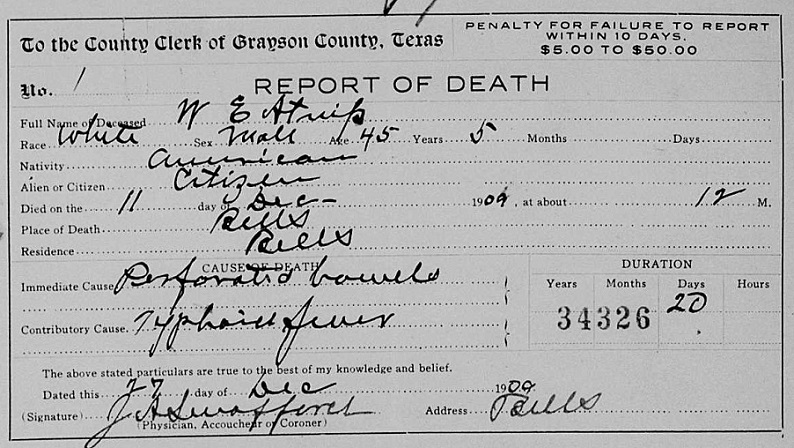 To the County Clerk of Grayson County, Texas
PENALTY FOR FAILURE TO REPORT
WITHIN 10 DAYS.
$5.00 TO $50.00
No. 1
REPORT OF DEATH
Full Name of Deceased W E
Race White Sex Male Age 45 Years 5 Months Days
Nativity American
Alien or Citizen Citizen
Died on the 11 day of Dec 1909 at about 12 M.
Place of Death Bells
Residence Bells
CAUSE OF DEATH
Immediate Cause Perforated bowels
Contributory Cause. Typhoid fever
DURATION
Years Months Days Hours
20
34326
The above stated particulars are true to the best of my knowledge and belief.
Dated this 27 day of Dec 1909
(Signature) J A Swafford Address Bells
(Physician, Accoucheur or Coroner)